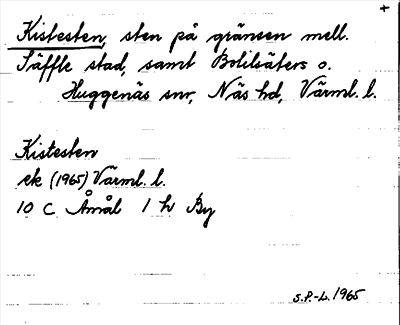 +
Kistesten, sten på gränsen mell.
Säffle stad, samt Bolilsäters o.
Huggenäs snr, Näs hd, Värml. l.
Kistesten
ek (1965) Värml. l.
10 C Åmål 1 h By
S.P.-L. 1965